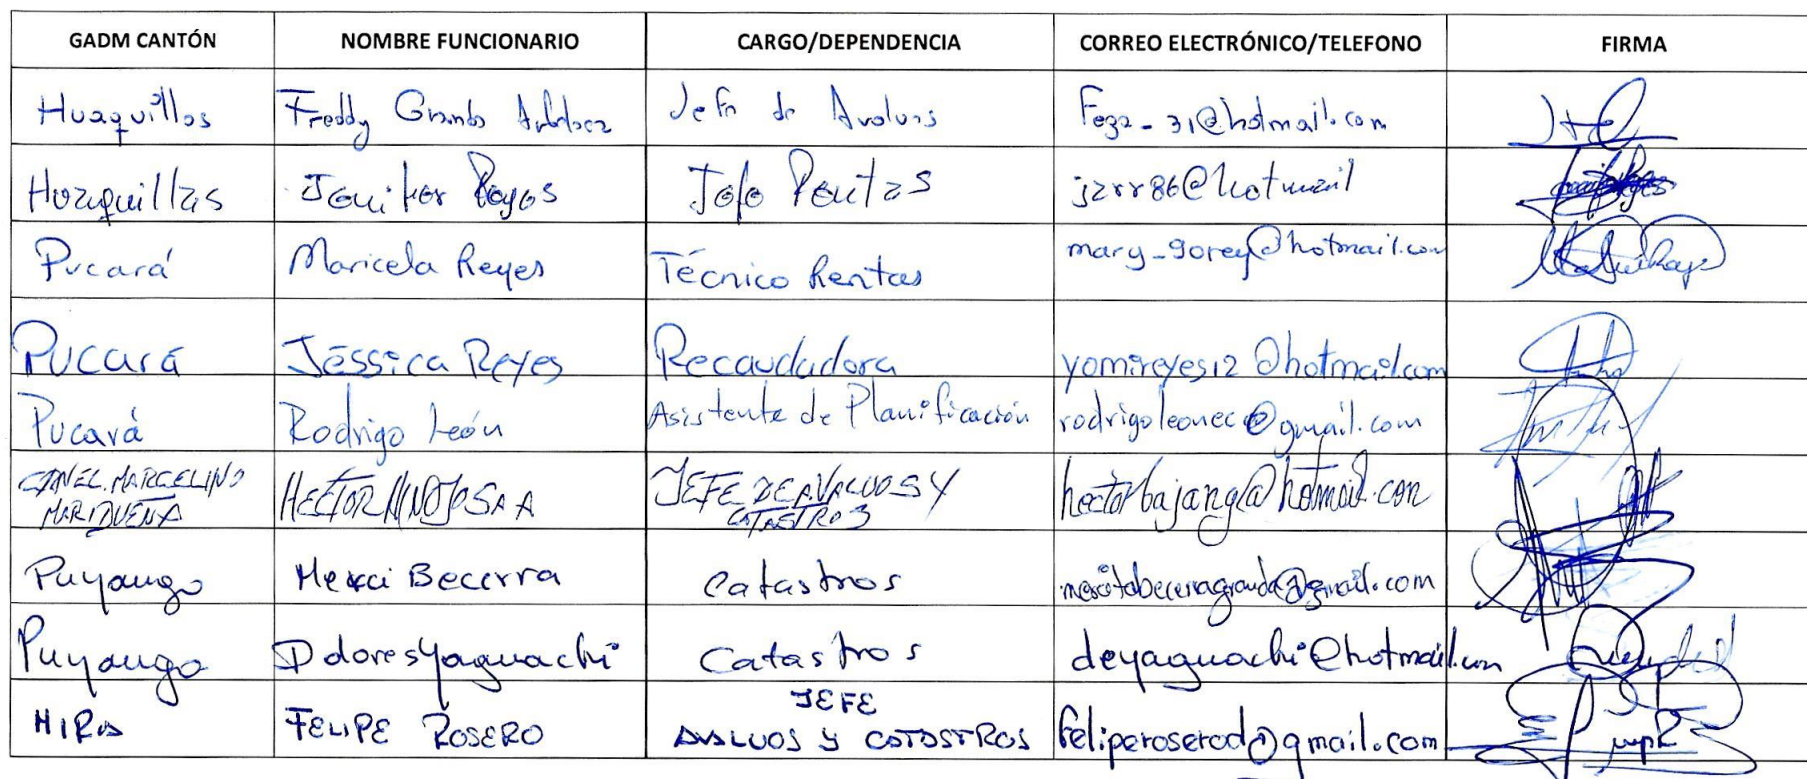 GADM CANTÓN NOMBRE FUNCIONARIO CARGO/DEPENDENCIA CORREO ELECTRÓNICO/TELEFONO FIRMA
Huaquillas Freddy Jefe de Avaluos @hotmail.com
Huaquillas Jenifer Reyes Jefe Rentas jarr86@hotmail
Pucará Maricela Reyes Técnico Rentas mary_gorey@hotmail.com
Pucará Jéssica Reyes Recaudadora yomireyes12@hotmail.com
Pucará Rodrigo León Asistente de Planificación rodrigoleonec@gmail.com
MARCELINO
MARIDUEÑA HECTOR HINOJOSA A JEFE DE AVALUOS Y
CATASTROS hectorbajang@hotmail.com
Puyango Merci Becerra Catastros mercitabecerragranda@gmail.com
Puyango Dolores Yaguachi Catastros deyaguachi@hotmail.com
MIRA FELIPE ROSERO JEFE
AVALUOS Y CATASTROS feliperoserod@gmail.com